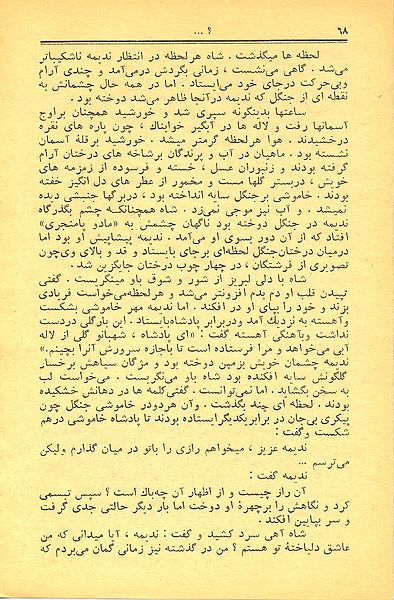 ۶۸
؟ ...
لحظه ها میگذشت . شاه هر لحظه در انتظار ندیمه ناشکیباتر
می‌شد . گاهی می‌نشست ، زمانی بگردش درمی‌آمد و چندی آرام
و بی‌حرکت در جای خود می‌ایستاد . اما در همه حال چشمانش به
نقطه ای از جنگل که ندیمه در آنجا ظاهر می‌شد دوخته بود .
ساعتها بدینگونه سپری شد و خورشید همچنان بر اوج
آسمانها رفت و لاله ها در آبگیر خوابناك ، چون پاره های نقره
درخشیدند . هوا هر لحظه گرمتر میشد . خورشید بر قلهٔ آسمان
نشسته بود . ماهیان در آب و پرندگان برشاخه های درختان آرام
گرفته بودند و زنبوران عسل ، خسته و فرسوده از زمزمه های
خویش ، در بستر گلها مست و مخمور از عطر های دل انگیز خفته
بودند . خاموشی بر جنگل سایه انداخته بود ، در برگها جنبشی دیده
نمیشد . و آب نیز موجی نمی‌زد . شاه همچنانکه چشم بگذرگاه
ندیمه در جنگل دوخته بود ناگهان چشمش به «مادو پامنجری»
افتاد که از آن دور بسوی او می‌آمد . ندیمه پیشاپیش او بود اما
در میان درختان جنگل لحظه‌ای برجای بایستاد و قد و بالای وی چون
تصویری از فرشتگان ، در چهار چوب درختان جایگزین شد .
شاه با دلی لبریز از شور و شوق باو مینگریست . گفتی
تپیدن قلب او دم بدم افزونتر می‌شد و هر لحظه می‌خواست فریادی
بزند و خود را بپای او در افکند . اما ندیمه مهر خاموشی بشکست
و آهسته به نزدیك آمد و در برابر پادشاه بایستاد . این بار گلی در دست
نداشت و بآهنگی آهسته گفت : «ای پادشاه ، شهبانو گلی از لاله
آبی می‌خواهد و مرا فرستاده است تا باجازه سرورش آنرا بچینم.»
ندیمه چشمان خویش بزمین دوخته بود و مژگان سیاهش بر خسار
گلگونش سایه افکنده بود شاه باو می‌نگریست . می‌خواست لب
به سخن بگشاید . اما نمی‌توانست . گفتی کلمه ها در دهانش خشکیده
بودند . لحظه ای چند بگذشت . و آن هر دو در خاموشی جنگل چون
پیکری بی‌جان در برابر یکدیگر ایستاده بودند تا پادشاه خاموشی در هم
شکست و گفت :
ندیمه عزیز ، میخواهم رازی را با تو در میان گذارم ولیکن
می‌ترسم ...
ندیمه گفت :
آن راز چیست و از اظهار آن چه باك است ؟ سپس تبسمی
کرد و نگاهش را بر چهرهٔ او دوخت اما بار دیگر حالتی جدی گرفت
و سر بپایین افکند .
شاه آهی سرد کشید و گفت : ندیمه ، آیا میدانی که من
عاشق دلباختهٔ تو هستم ؟ من در گذشته نیز زمانی گمان می‌بردم که